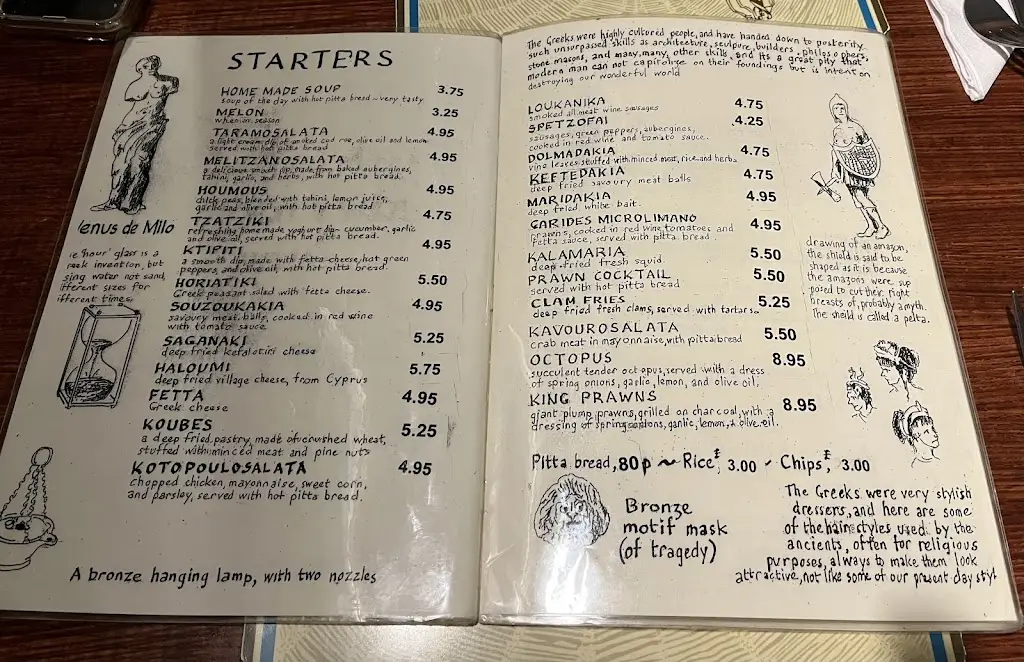 STARTERS
HOME MADE SOUP 3.75
soup of the day with hot pitta bread - very tasty
MELON 3.25
when in season
TARAMOSALATA 4.95
a light cream dip of smoked cod roe, olive oil and lemon
served with hot pitta bread
MELITZANOSALATA 4.95
a delicious smooth dip, made from baked aubergines,
tahini, garlic, and herbs, with hot pitta bread.
HOUMOUS 4.95
chick peas, blended with tahini, lemon juice,
garlic and olive oil, with hot pitta bread.
TZATZIKI 4.75
refreshing home made yoghurt dip - cucumber, garlic
and olive oil, served with hot pitta bread.
KTIPITI 4.95
a smooth dip, made with fetta cheese, hot green
peppers, and olive oil, with hot pitta bread.
HORIATIKI 5.50
Greek peasant salad with fetta cheese.
SOUZOUKAKIA 4.95
savoury meat balls, cooked in red wine
with tomato sauce
SAGANAKI 5.25
deep fried kefalotiri cheese
HALOUMI 5.75
deep fried village cheese, from Cyprus
FETTA 4.95
Greek cheese
KOUBES 5.25
a deep fried pastry, made of crushed wheat,
stuffed with minced meat and pine nuts
KOTOPOULOSALATA 4.95
chopped chicken, mayonnaise, sweet corn,
and parsley, served with hot pitta bread.
enus de Milo
'hour' glass is a
invention, but
sing water not sand,
ifferent sizes for
ifferent times
A bronze hanging lamp, with two nozzles
The Greeks were highly cultured people, and have handed down to posterity
such unsurpassed skills as architecture, sculpure, builders, philosophers,
stone masons, and many, many, other skills, and its a great pity that
modern man can not capitalize on their foundings but is intent on
destroying our wonderful world
LOUKANIKA 4.75
smoked all meat wine sausages
SPETZOFAI .25
sausages, green peppers, aubergines,
cooked in red wine and tomato sauce.
DOLMADAKIA 4.75
vine leaves stuffed with minced meat, rice, and herbs
KEFTEDAKIA 4.75
deep fried savoury meat balls
MARIDAKIA 4.95
deep fried white bait.
GARIDES MICROLIMANO 4.95
prawns, cooked in red wine, tomatoes and
fetta sauce, served with pitta bread.
KALAMARIA 5.50
deep fried fresh squid.
PRAWN COCKTAIL 5.50
served with hot pitta bread
CLAM FRIES 5.25
deep fried fresh clams, served with tartar sa
KAVOUROSALATA 5.50
crab meat in mayonnaise, with pitta bread
OCTOPUS 8.95
succulent tender octopus, served with a dress
of spring onions, garlic, lemon, and olive oil.
KING PRAWNS 8.95
giant plump prawns, grilled on charcoal, with a
dressing of spring onions, garlic, lemon, + olive oil.
drawing of an amazon,
the shield is said to be
shaped as it is because
the amazons were sup
posed to cut their right
breasts of, probably a myth.
The sheild is called a pelta.
Pitta bread, 80p ~ Rice £ 3.00 - Chips £ 3.00
Bronze
motif mask
(of tragedy)
The Greeks were very stylish
dressers, and here are some
of the hair styles used by the
ancients, often for religious
purposes, always to make them look
attractive, not like some of our present day styl